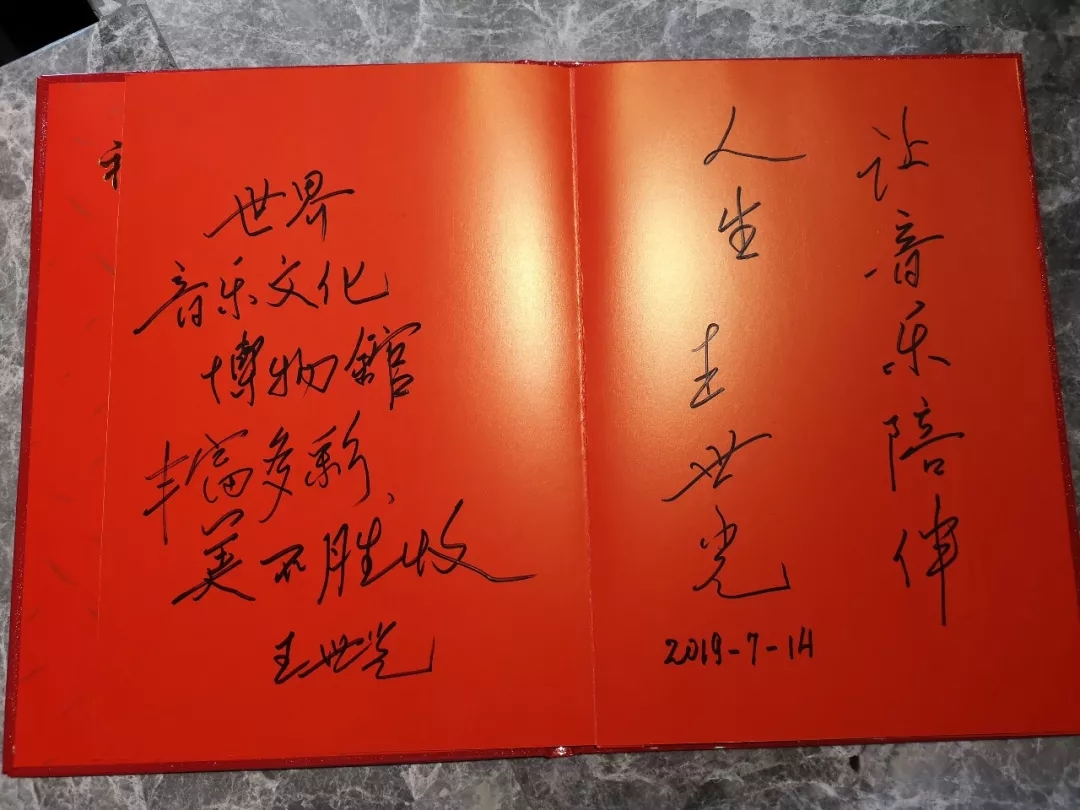 世界
音乐文化
博物館
丰富多彩、
美不胜收
王世光
让音乐陪伴
人生 王世光
2019-7-14